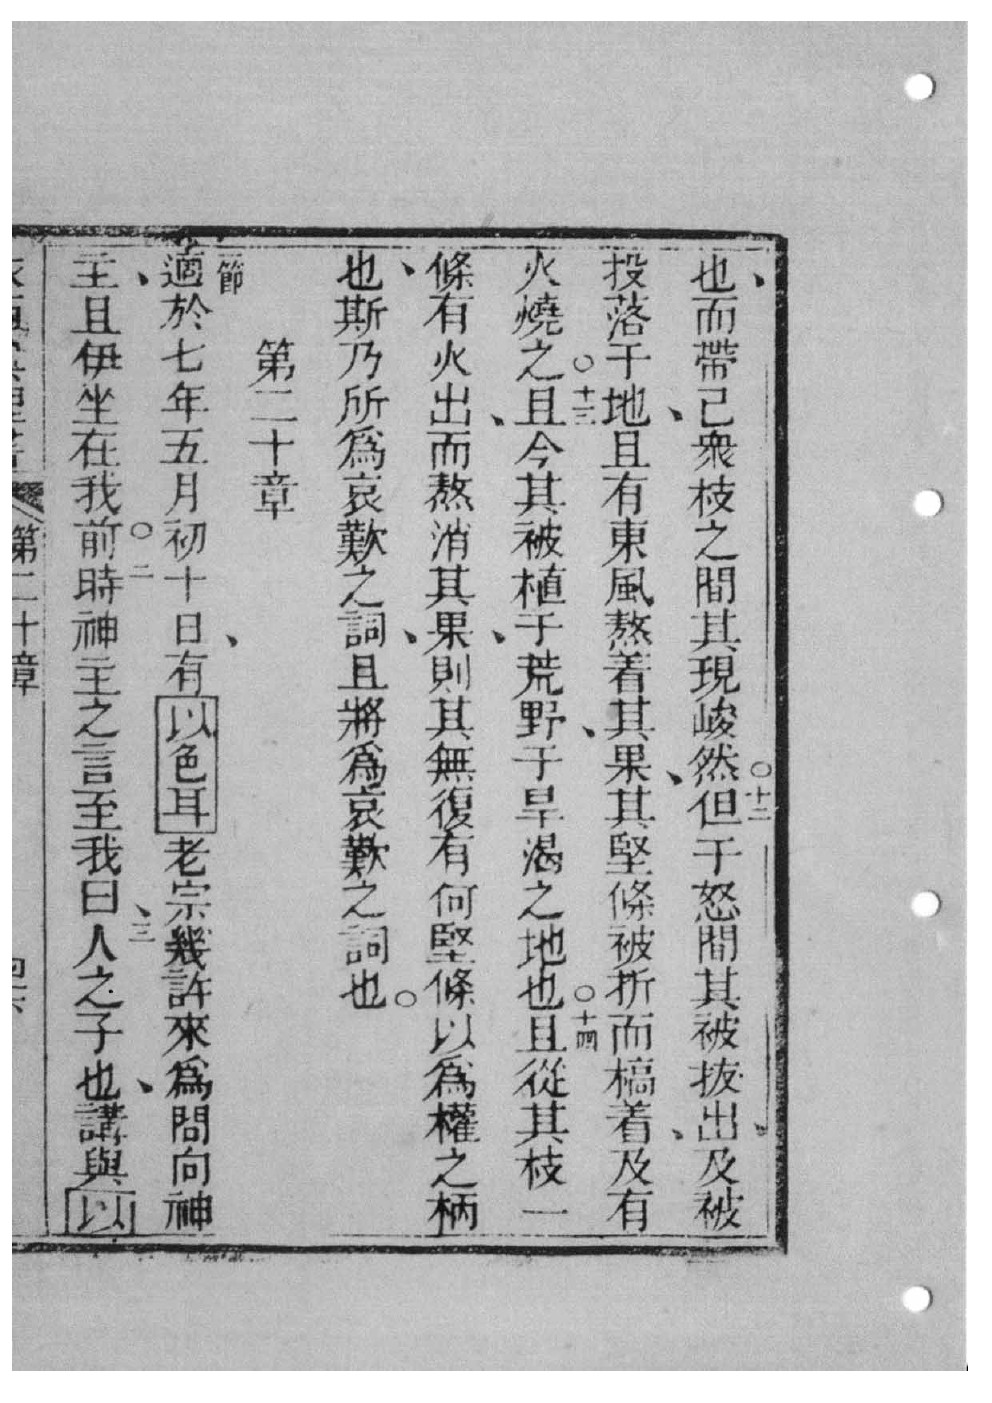 也、而帶己衆枝之間其現峻然○十二但于怒間其被拔出、及被
投落于地、且有東風熬着其果、其堅條被折而槁着、及有
火燒之○十三且今其被植于荒野、于旱渴之地也○十四且從其枝一
條有火出、而熬消其果、則其無復有何堅條以爲權之柄
也、斯乃所爲哀歎之詞、且將爲哀歎之詞也○
第二十章
節適於七年五月初十日、有以色耳老宗幾許來爲問向神
主、且伊坐在我前○二時神主之言至我曰、三人之子也、講與以
第二十章